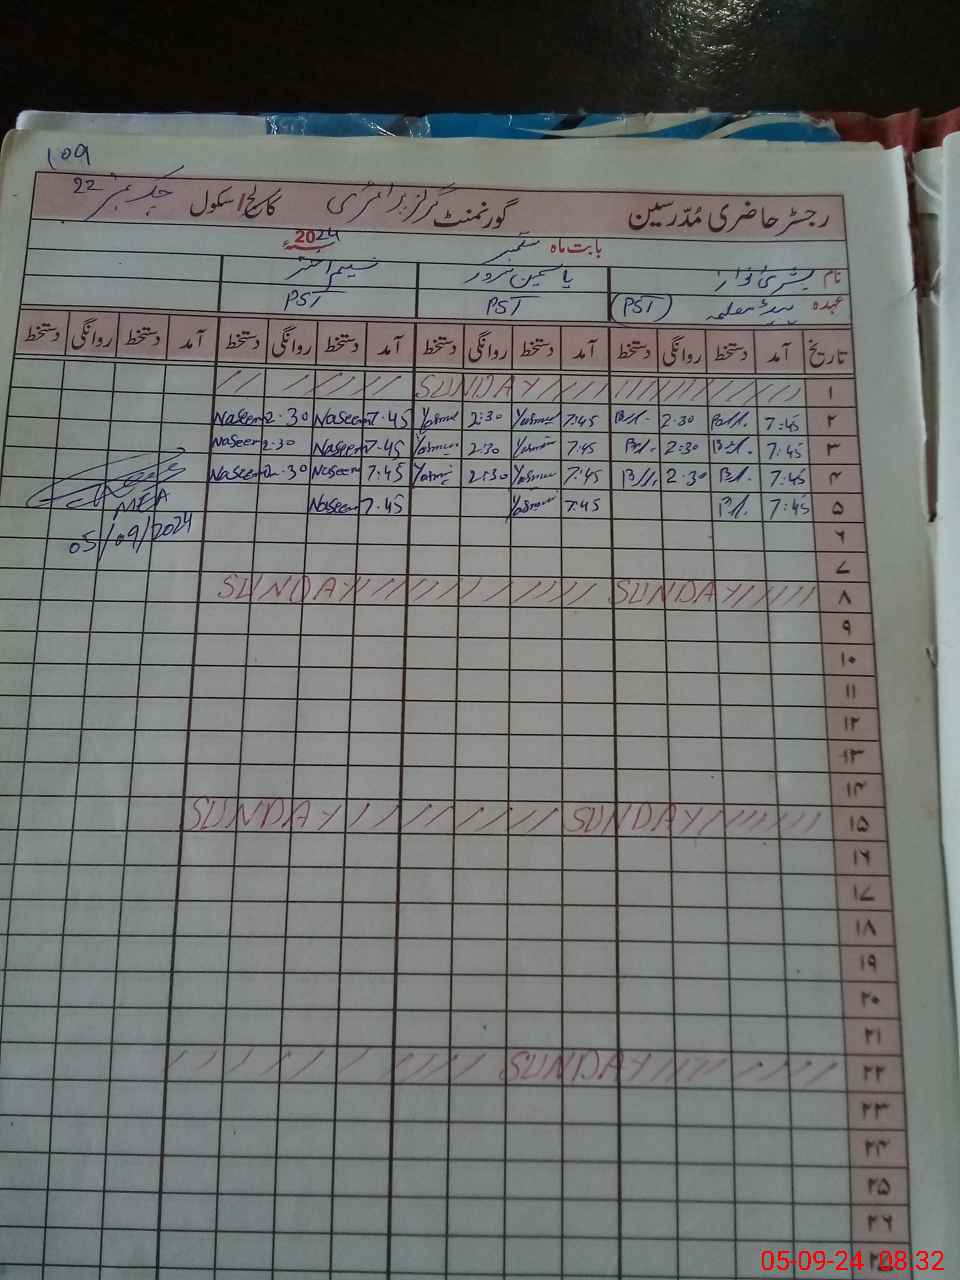 109
رجسٹر حاضری مُدّرسین گورنمنٹ گرلز پرائمری کالج / سکول چک نمبر 22
بابت ماہ ستمبر 2024ء
نام بشریٰ یاسمین سرور نسیم اختر
عہدہ ہیڈ معلمہ (PST) PST PST
تاریخ آمد دستخط روانگی دستخط آمد دستخط روانگی دستخط آمد دستخط روانگی دستخط آمد دستخط روانگی دستخط
۱ SUNDAY
۲ 7:45 2:30 7:45 Yasmin 2:30 7.45 Naseem 2.30 Naseem
۳ 7:45 2:30 7:45 Yasmin 2:30 7.45 Naseem 2:30 Naseem
۴ 7:45 2:30 7:45 Yasmin 2:30 Yasmin 7:45 Naseem 2.30 Naseem
۵ 7:45 7:45 Yasmin 7.45 Naseem
MEA
05/09/2024
۶
۷
۸ SUNDAY SUNDAY
۹
۱۰
۱۱
۱۲
۱۳
۱۴
۱۵ SUNDAY SUNDAY
۱۶
۱۷
۱۸
۱۹
۲۰
۲۱
۲۲ SUNDAY
۲۳
۲۴
۲۵
۲۶
05-09-24 08:32